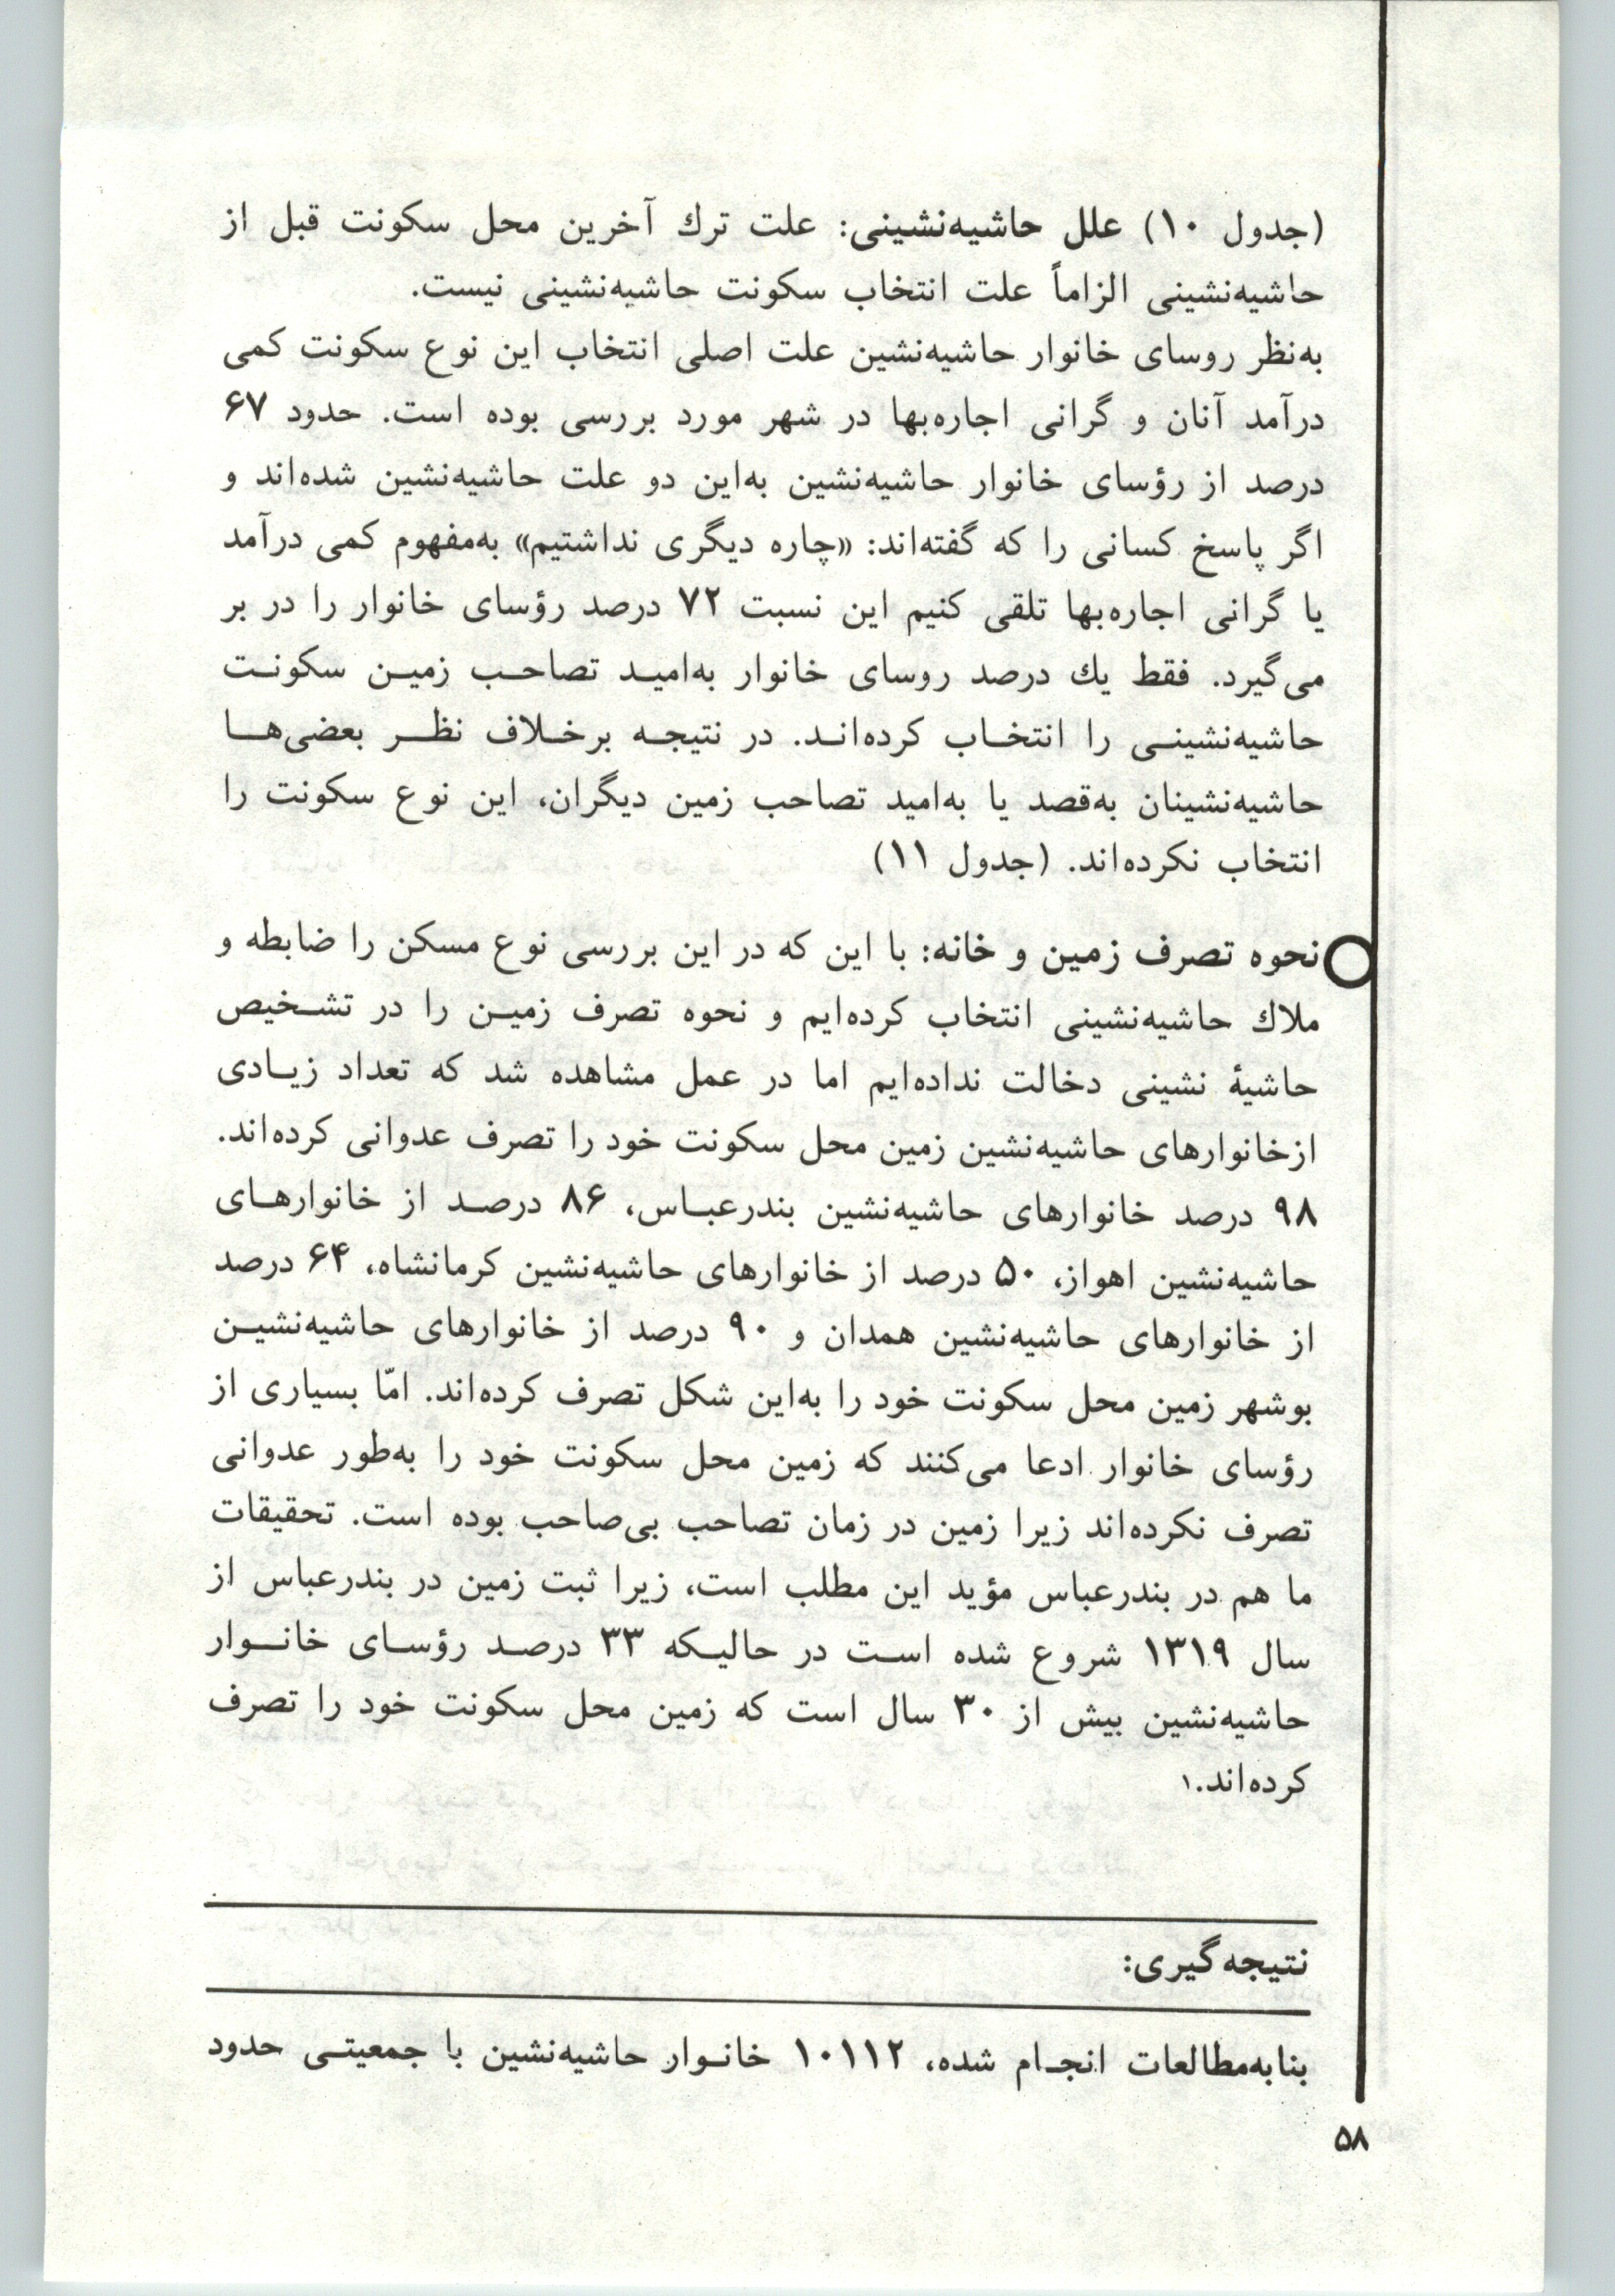 (جدول ۱۰) علل حاشیه‌نشینی: علت ترك آخرین محل سکونت قبل از
حاشیه‌نشینی الزاماً علت انتخاب سکونت حاشیه‌نشینی نیست.
به‌نظر روسای خانوار حاشیه‌نشین علت اصلی انتخاب این نوع سکونت کمی
درآمد آنان و گرانی اجاره‌بها در شهر مورد بررسی بوده است. حدود ۶۷
درصد از رؤسای خانوار حاشیه‌نشین به‌این دو علت حاشیه‌نشین شده‌اند و
اگر پاسخ کسانی را که گفته‌اند: «چاره دیگری نداشتیم» به‌مفهوم کمی درآمد
یا گرانی اجاره‌بها تلقی کنیم این نسبت ۷۲ درصد رؤسای خانوار را در بر
می‌گیرد. فقط یك درصد روسای خانوار به‌امیـد تصاحـب زمیـن سکونـت
حاشیه‌نشینـی را انتخـاب کرده‌انـد. در نتیجـه برخـلاف نظـر بعضی‌هـا
حاشیه‌نشینان به‌قصد یا به‌امید تصاحب زمین دیگران، این نوع سکونت را
انتخاب نکرده‌اند. (جدول ۱۱)
نحوه تصرف زمین و خانه: با این که در این بررسی نوع مسکن را ضابطه و
ملاك حاشیه‌نشینی انتخاب کرده‌ایم و نحوه تصرف زمیـن را در تشـخیص
حاشیهٔ نشینی دخالت نداده‌ایم اما در عمل مشاهده شد که تعداد زیـادی
ازخانوارهای حاشیه‌نشین زمین محل سکونت خود را تصرف عدوانی کرده‌اند.
۹۸ درصد خانوارهای حاشیه‌نشین بندرعبـاس، ۸۶ درصـد از خانوارهـای
حاشیه‌نشین اهواز، ۵۰ درصد از خانوارهای حاشیه‌نشین کرمانشاه، ۶۴ درصد
از خانوارهای حاشیه‌نشین همدان و ۹۰ درصد از خانوارهای حاشیه‌نشیـن
بوشهر زمین محل سکونت خود را به‌این شکل تصرف کرده‌اند. امّا بسیاری از
رؤسای خانوار ادعا می‌کنند که زمین محل سکونت خود را به‌طور عدوانی
تصرف نکرده‌اند زیرا زمین در زمان تصاحب بی‌صاحب بوده است. تحقیقات
ما هم در بندرعباس مؤید این مطلب است، زیرا ثبت زمین در بندرعباس از
سال ۱۳۱۹ شروع شده اسـت در حالیـکه ۳۳ درصـد رؤسـای خانـوار
حاشیه‌نشین بیش از ۳۰ سال است که زمین محل سکونت خود را تصرف
کرده‌اند.۱
نتیجه‌گیری:
بنابه‌مطالعات انجـام شده، ۱۰۱۱۲ خانـوار حاشیه‌نشین با جمعیتـی حدود
۵۸